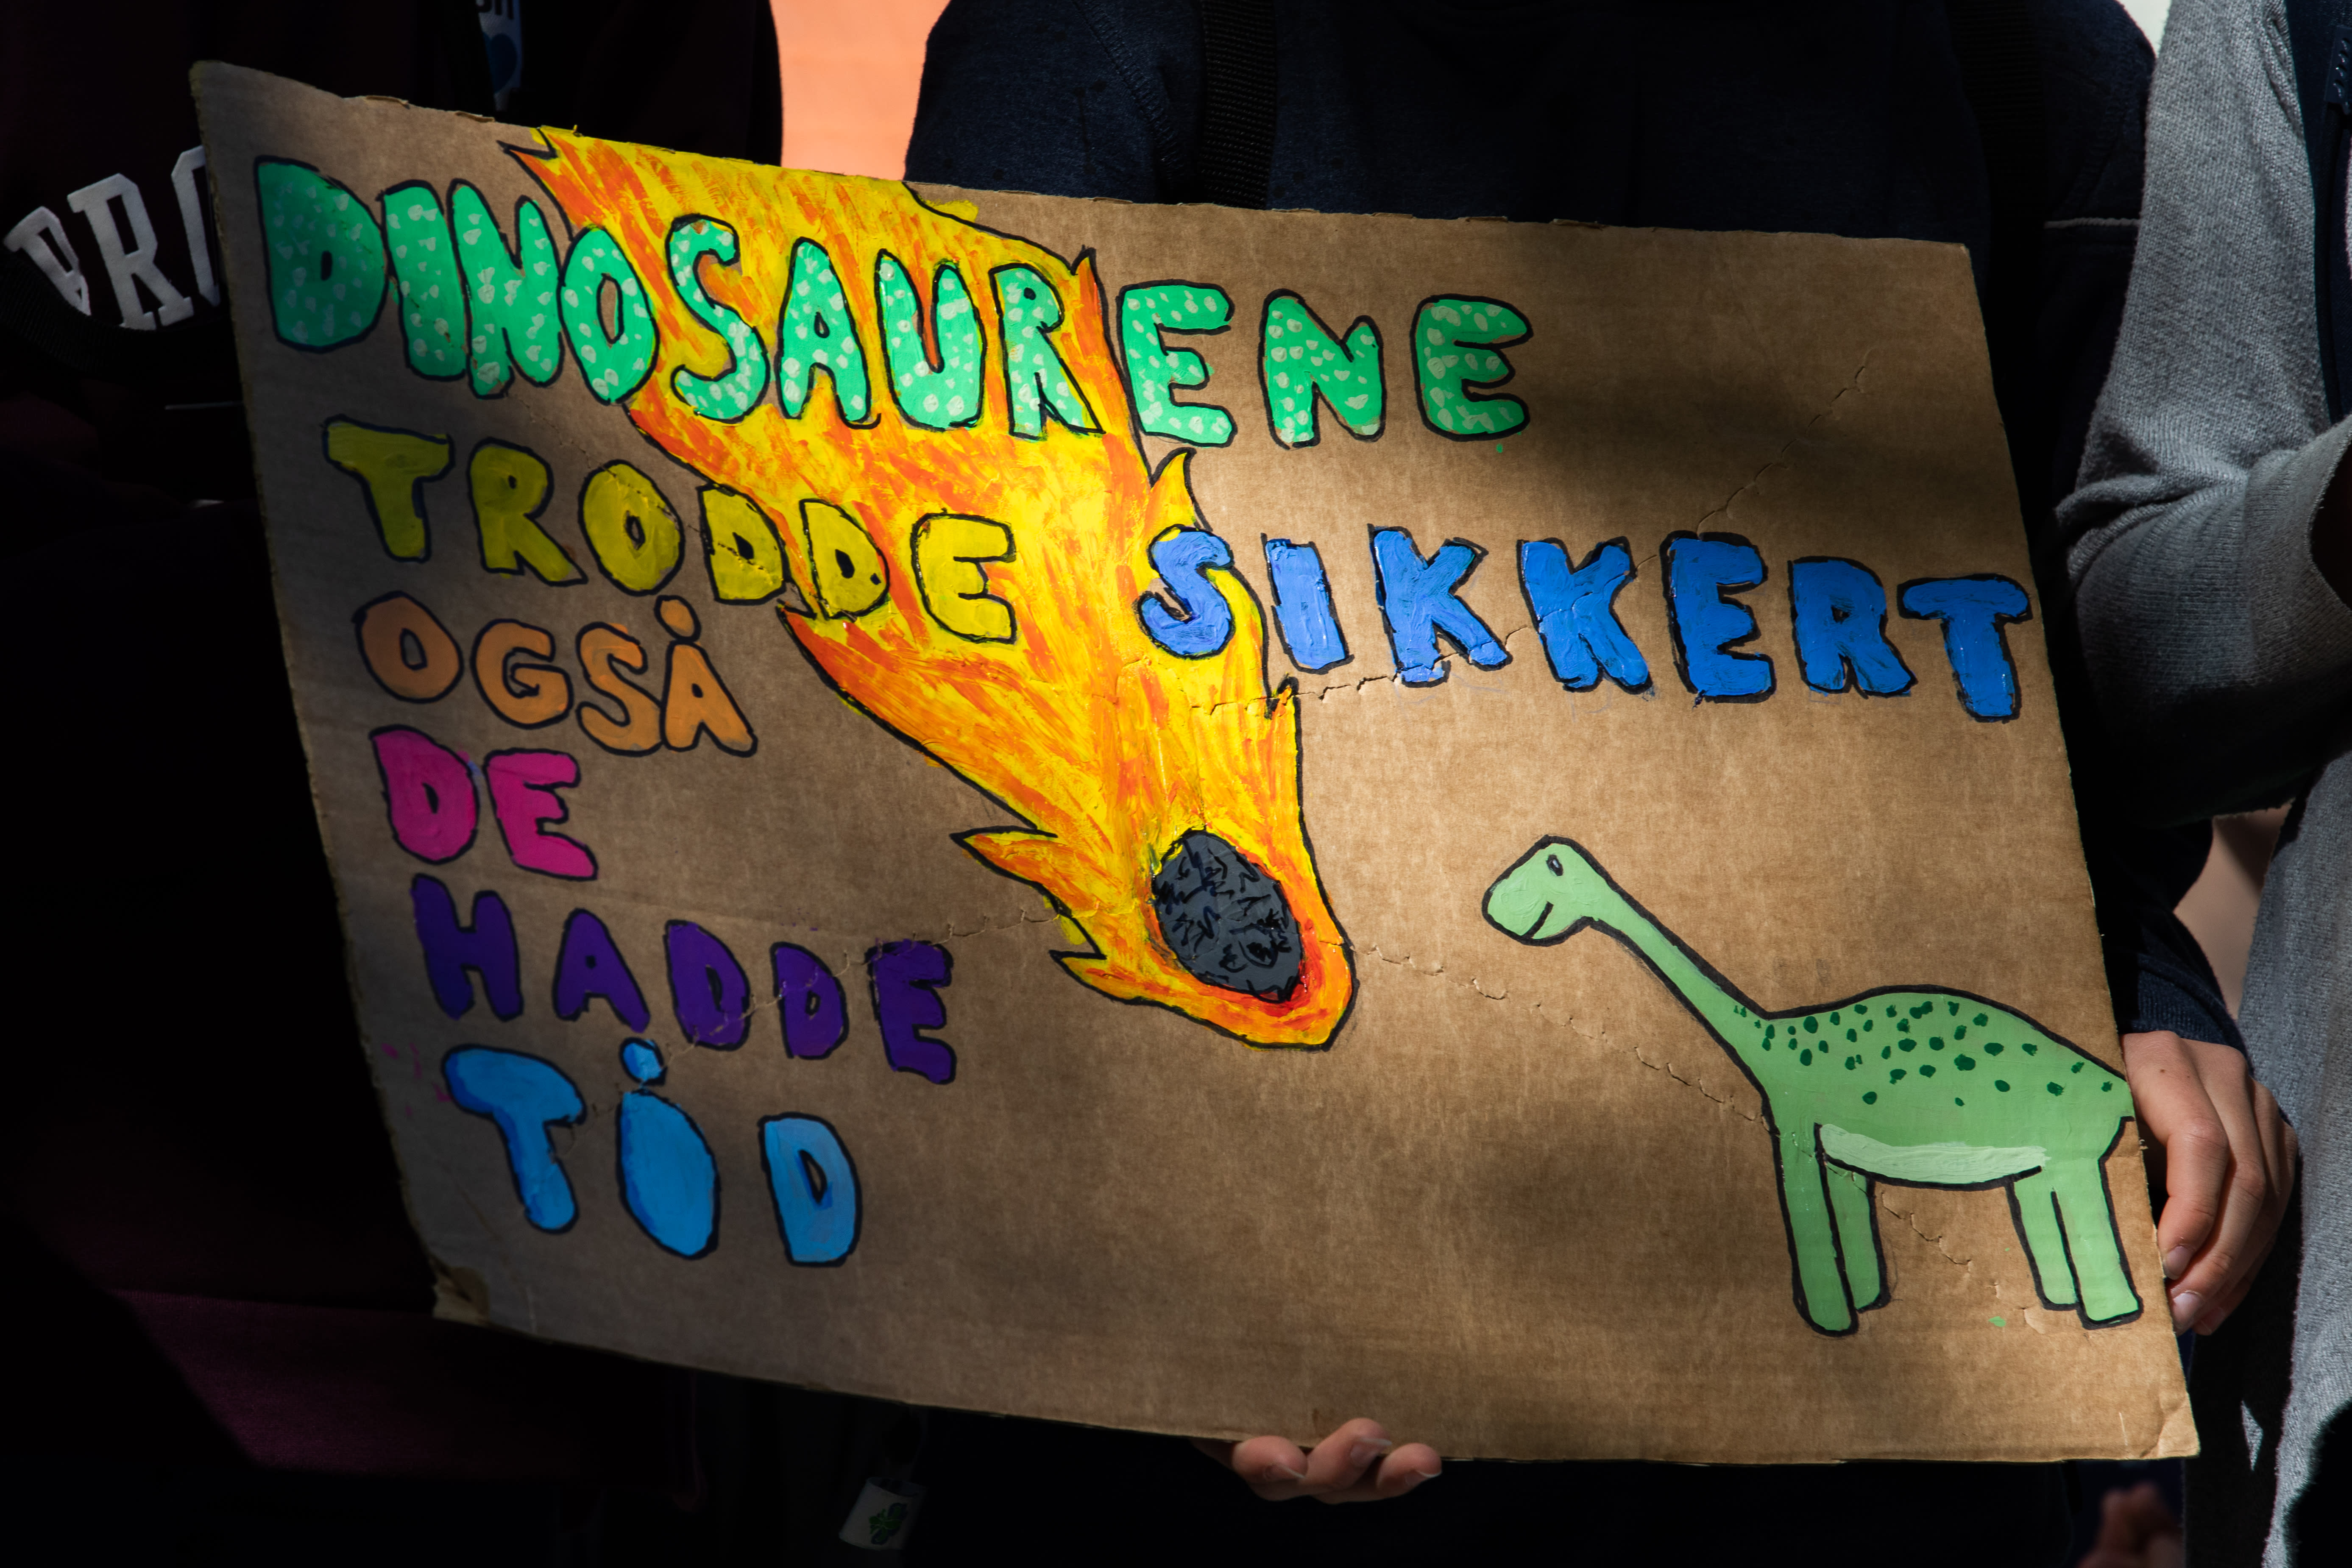 DINOSAURENE
TRODDE SIKKERT
OGSÅ
DE
HADDE
TiD